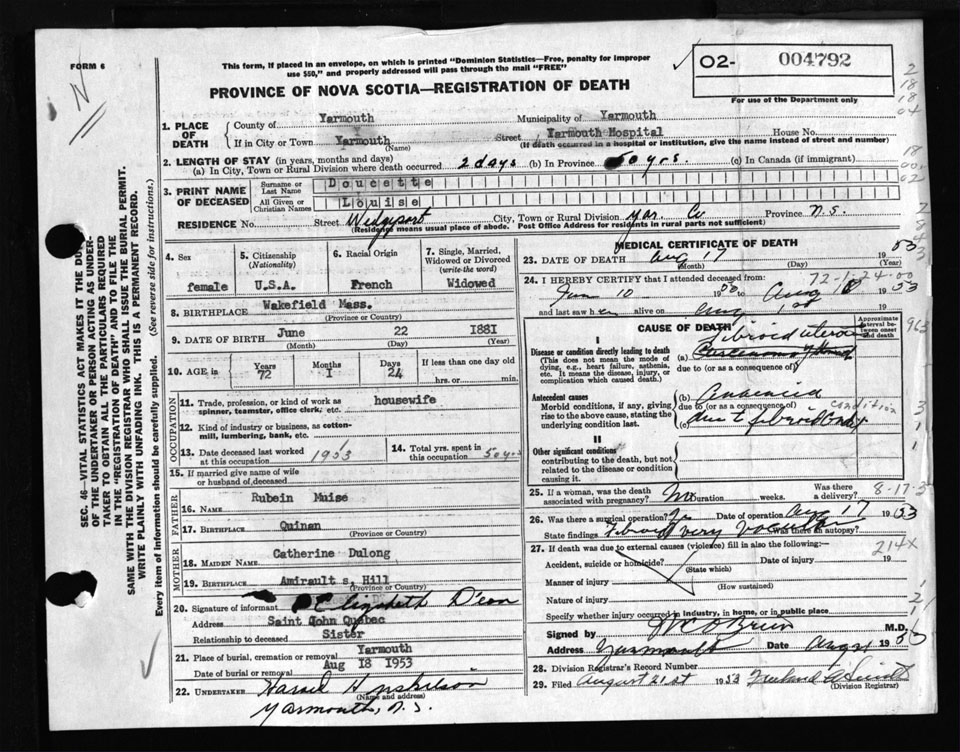 FORM 6
This form, if placed in an envelope, on which is printed "Dominion Statistics—Free, penalty for improper
use $50," and properly addressed will pass through the mail "FREE"
O2- 004792
For use of the Department only
PROVINCE OF NOVA SCOTIA—REGISTRATION OF DEATH
1. PLACE OF DEATH
County of Yarmouth Municipality of Yarmouth
If in City or Town Yarmouth (Name) Street Yarmouth Hospital House No.
(If death occurred in a hospital or institution, give the name instead of street and number)
2. LENGTH OF STAY (in years, months and days)
(a) In City, Town or Rural Division where death occurred 2 days (b) In Province 50 yrs. (c) In Canada (if immigrant)
3. PRINT NAME OF DECEASED
Surname or Last Name Doucette
All Given or Christian Names Louise
RESIDENCE No. Street Wedgeport City, Town or Rural Division Yar. Co Province N.S.
(Residence means usual place of abode. Post Office Address for residents in rural parts not sufficient)
SEC. 46—VITAL STATISTICS ACT MAKES IT THE DUTY
OF THE UNDERTAKER OR PERSON ACTING AS UNDER-
TAKER TO OBTAIN ALL THE PARTICULARS REQUIRED
IN THE "REGISTRATION OF DEATH" AND TO FILE THE
SAME WITH THE DIVISION REGISTRAR WHO SHALL ISSUE THE BURIAL PERMIT.
WRITE PLAINLY WITH UNFADING INK. THIS IS A PERMANENT RECORD.
Every item of information should be carefully supplied. (See reverse side for instructions.)
4. Sex female
5. Citizenship (Nationality) U.S.A.
6. Racial Origin French
7. Single, Married, Widowed or Divorced (write the word) Widowed
8. BIRTHPLACE Wakefield Mass.
(Province or Country)
9. DATE OF BIRTH June 22 1881
(Month) (Day) (Year)
10. AGE in Years 72 Months 1 Days 24 If less than one day old hrs. or min.
OCCUPATION
11. Trade, profession, or kind of work as spinner, teamster, office clerk, etc. housewife
12. Kind of industry or business, as cotton-mill, lumbering, bank, etc.
13. Date deceased last worked at this occupation 1953
14. Total yrs. spent in this occupation 50 yrs
15. If married give name of wife or husband of deceased
FATHER
16. NAME Rubein Muise
17. BIRTHPLACE Quinan
(Province or Country)
MOTHER
18. MAIDEN NAME Catherine Dulong
19. BIRTHPLACE Amirault s, Hill
(Province or Country)
20. Signature of informant Elizabeth D'eon
Address Saint John Quebec
Relationship to deceased Sister
21. Place of burial, cremation or removal Yarmouth
Date of burial or removal Aug 18 1953
22. UNDERTAKER
(Name and address)
Yarmouth, N.S.
MEDICAL CERTIFICATE OF DEATH
23. DATE OF DEATH Aug 17 1953
(Month) (Day) (Year)
72-1-24-00
24. I HEREBY CERTIFY that I attended deceased from:
10 19 to Aug 1953
and last saw h er alive on Aug 19
CAUSE OF DEATH
Approximate interval between onset and death
I
Disease or condition directly leading to death
(This does not mean the mode of dying, e.g., heart failure, asthenia, etc. It means the disease, injury, or complication which caused death.)
(a) Fibroid uterus
Carcinoma of
due to (or as a consequence of)
Antecedent causes
Morbid conditions, if any, giving rise to the above cause, stating the underlying condition last.
(b) Anaemia
due to (or as a consequence of) condition
(c) due to fibroid only
II
Other significant conditions
contributing to the death, but not related to the disease or condition causing it.
25. If a woman, was the death associated with pregnancy? No Duration weeks. Was there a delivery?
8-17-3
26. Was there a surgical operation? Yes Date of operation Aug 17 1953
State findings Fibroid very vascular Was there an autopsy?
27. If death was due to external causes (violence) fill in also the following:—
214X
Accident, suicide or homicide? Date of injury 19
(State which)
Manner of injury
(How sustained)
Nature of injury
Specify whether injury occurred in industry, in home, or in public place
Signed by O'Brien M.D.
Address Yarmouth Date Aug 1953
28. Division Registrar's Record Number
29. Filed August 21st 1953
(Division Registrar)